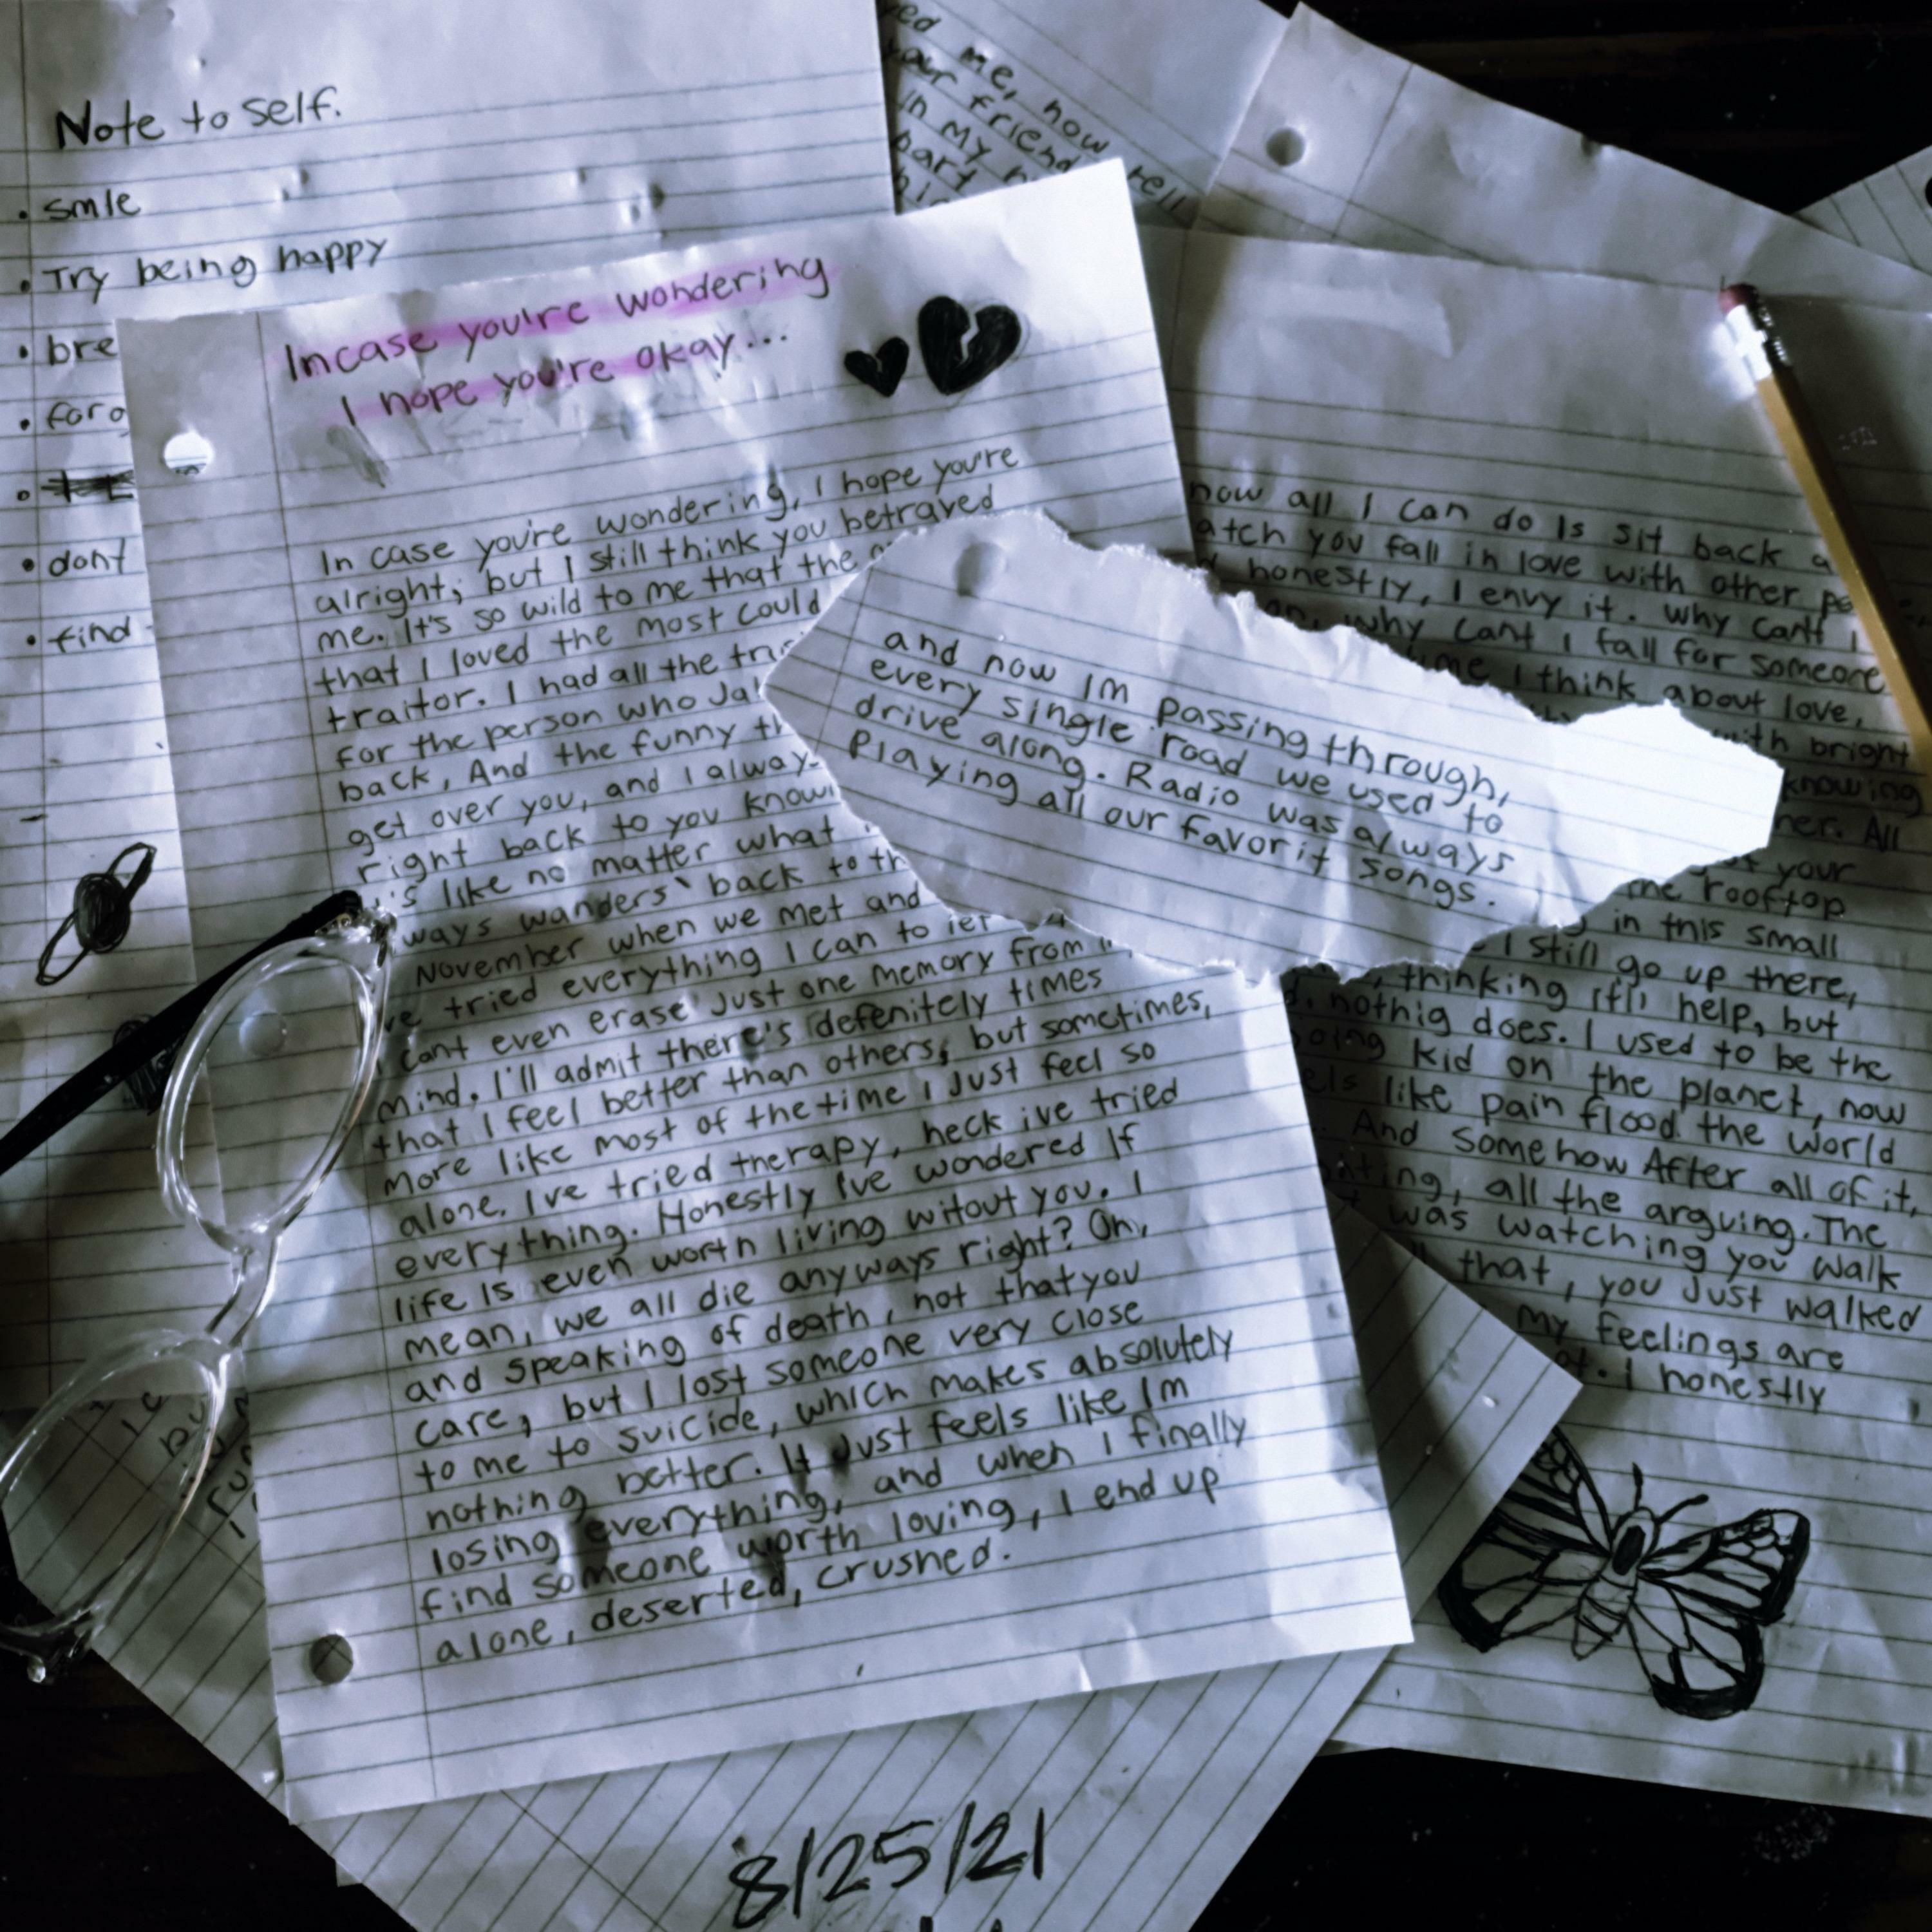 Note to self.
. smle
. Try being happy
. bre
. forg
. dont
. find
ed me, now tell
our friend
in my
part
Incase you're wondering
I hope you're okay...
In case you're wondering, I hope you're
alright; but I still think you betrayed
me. It's so wild to me that the
that I loved the most could
traitor. I had all the
for the person who
back, And the funny
get over you, and I
right back to you
's like no matter what
ways wanders back to
November when we met and
ve tried everything I can to let
cant even erase just one memory from
mind. I'll admit there's defenitely times
that I feel better than others, but sometimes,
more like most of the time I just feel so
alone. Ive tried therapy, heck ive tried
everything. Honestly Ive wondered If
life Is even worth living witout you. I
mean, we all die anyways right? Oh,
and speaking of death, not that you
care, but I lost someone very close
to me to suicide, which makes absolutely
nothing better. It Just feels like Im
losing everything, and when I finally
find someone worth loving, I end up
alone, deserted, crushed.
and now Im passing through,
every single road we used to
drive along. Radio was always
Playing all our favorit songs.
now all I can do Is sit back a
atch you fall in love with other pe
honestly, I envy it. why cant I
why cant I fall for someone
time I think about love,
with bright
knowing
her. All
your
the rooftop
in this small
I still go up there,
thinking it'll help, but
nothig does. I used to be the
kid on the planet, now
like pain flood the world
And somehow After all of it,
all the arguing. The
was watching you walk
that, you just walked
my feelings are
I honestly
8/25/21